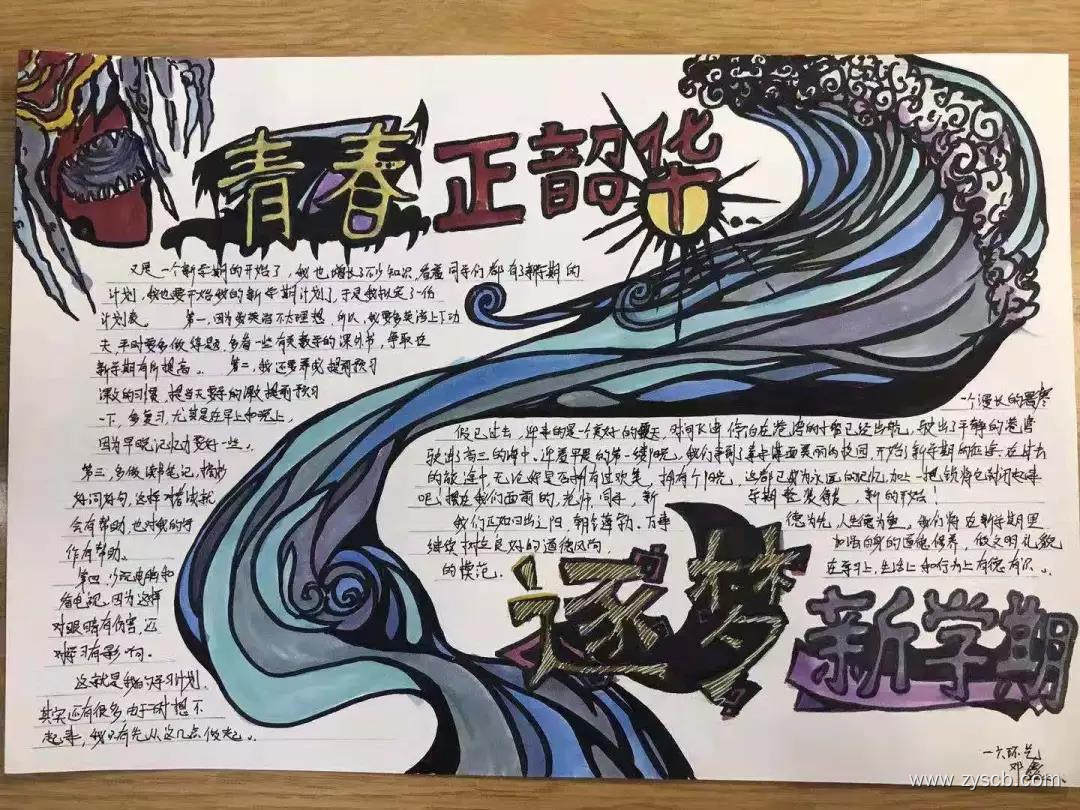 青春正韶华
又是一个新学期的开始了,我也增长了不少知识,看着同学们都有了新学期的
计划,我也要开始我的新学期计划了,于是我拟定了一份
计划表 第一,因为数英语不太理想,所以,我要多英语上下功
夫,平时要多做练题,多看一些有关数学的课外书,争取在
新学期有所提高。 第二,我还要养成提前预习
课文的习惯,把当天要学的课文提前预习
一下,多复习,尤其是在早上和晚上,
因为早晚记忆力要好一些。
第三,多做读书笔记,摘抄
好词好句,这样对考试就
会有帮助,也对我的写
作有帮助。
第四,少玩电脑和
看电视,因为这样
对眼睛有伤害,还
对学习有影响。
这就是我的学习计划,
其实还有很多由于时想不
起来,我只有先从这几点做起。
一个漫长的寒
假已过去,迎来的是一个美好的春天,时间飞逝 停泊在港湾的小船已经出航,驶出了平静的港湾
驶进了高三的海中,迎着早晨的第一缕阳光,我们来到了美丽的校园,开始了新学期的征途,在过去
的旅途中,无论好是否拥有过欢笑,拥有个阳光,这都已成为永远的记忆,加上一把锁将它尘封起来
吧!摆在我们面前的,老师,同学,新学期 整装待发,新的开始!
我们正如日出之阳,朝气蓬勃,万事德为先,人生德为重,我们将在新学期里
继续树立良好的道德风尚,加强自身的道德修养,做文明礼貌
的模范。在学习上,生活上和行为上有德有行。
逐梦
新学期
一六环艺
邓
www.zyscb.com